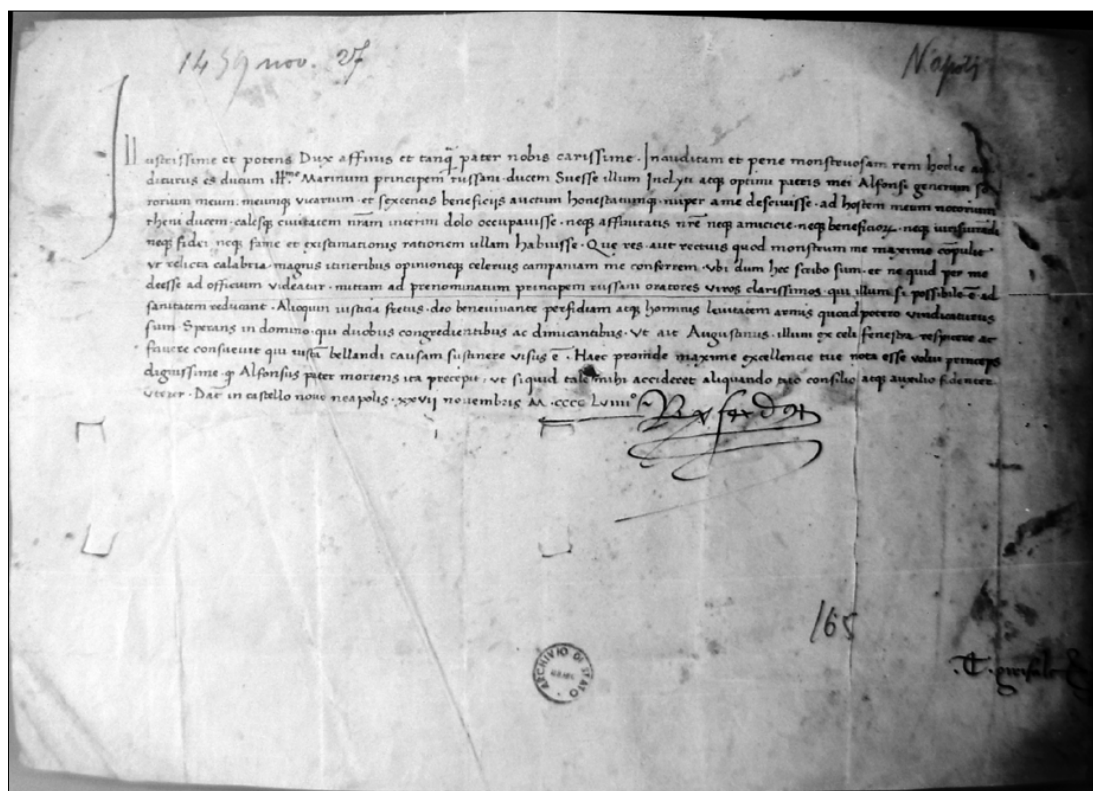 1459 nov. 27
Napoli
Illustrissime et potens Dux affinis et tanq̃ pater nobis carissime · Inauditam et pene monstruosam rem hodie au
diturus es ducum Ill.me Marinum principem russani · ducem Suesse illum Inclyti atq; optimi patris mei Alfonsi generum so
rorium meum · meumq; vicarium · et sexcenis beneficijs auctum honestatumq; nuper a me descivisse · ad hostem meum notorium
rheni ducem · calesq; civitatem nr̃am interim dolo occupavisse · neq; affinitatis nr̃e neq; amicicie · neq; beneficioꝝ · neq; iurisiurãdi
neq; fidei neq; fame et existimationis rationem ullam habuisse · Que res aut rectius quod monstrum me maxime cõpulit
ut relicta calabria · magnis itineribus opinioneq; celerius campaniam me conferrem · ubi dum hec scribo sum · et ne quid per me
deesse ad officium videatur · mittam ad prenominatum principem russani oratores viros clarissimos · qui illum si possibile ẽ ad
sanitatem reducant · Alioquin iusticia fretus · deo benevivante perfidiam atq; hominis levitatem armis quoad potero vindicaturus
sum · Sperans in domino · qui duobus congredientibus ac dimicantibus · ut ait Augustinus · illum ex celi fenestra respicere ac
favere consuevit qui iustã bellandi causam sustinere visus ẽ · Haec proinde maxime excellencie tue nota esse volui princeps
dignissime · q̃ Alfonsus pater moriens ita precepit · ut siquid tale mihi accideret aliquando tuo consilio atq; auxilio fidenter
uterer · Dat̃ in castello novo neapolis · xxvii novembris M · cccc Lviiii°
Rex ferdinandus
165
ARCHIVIO DI STATO